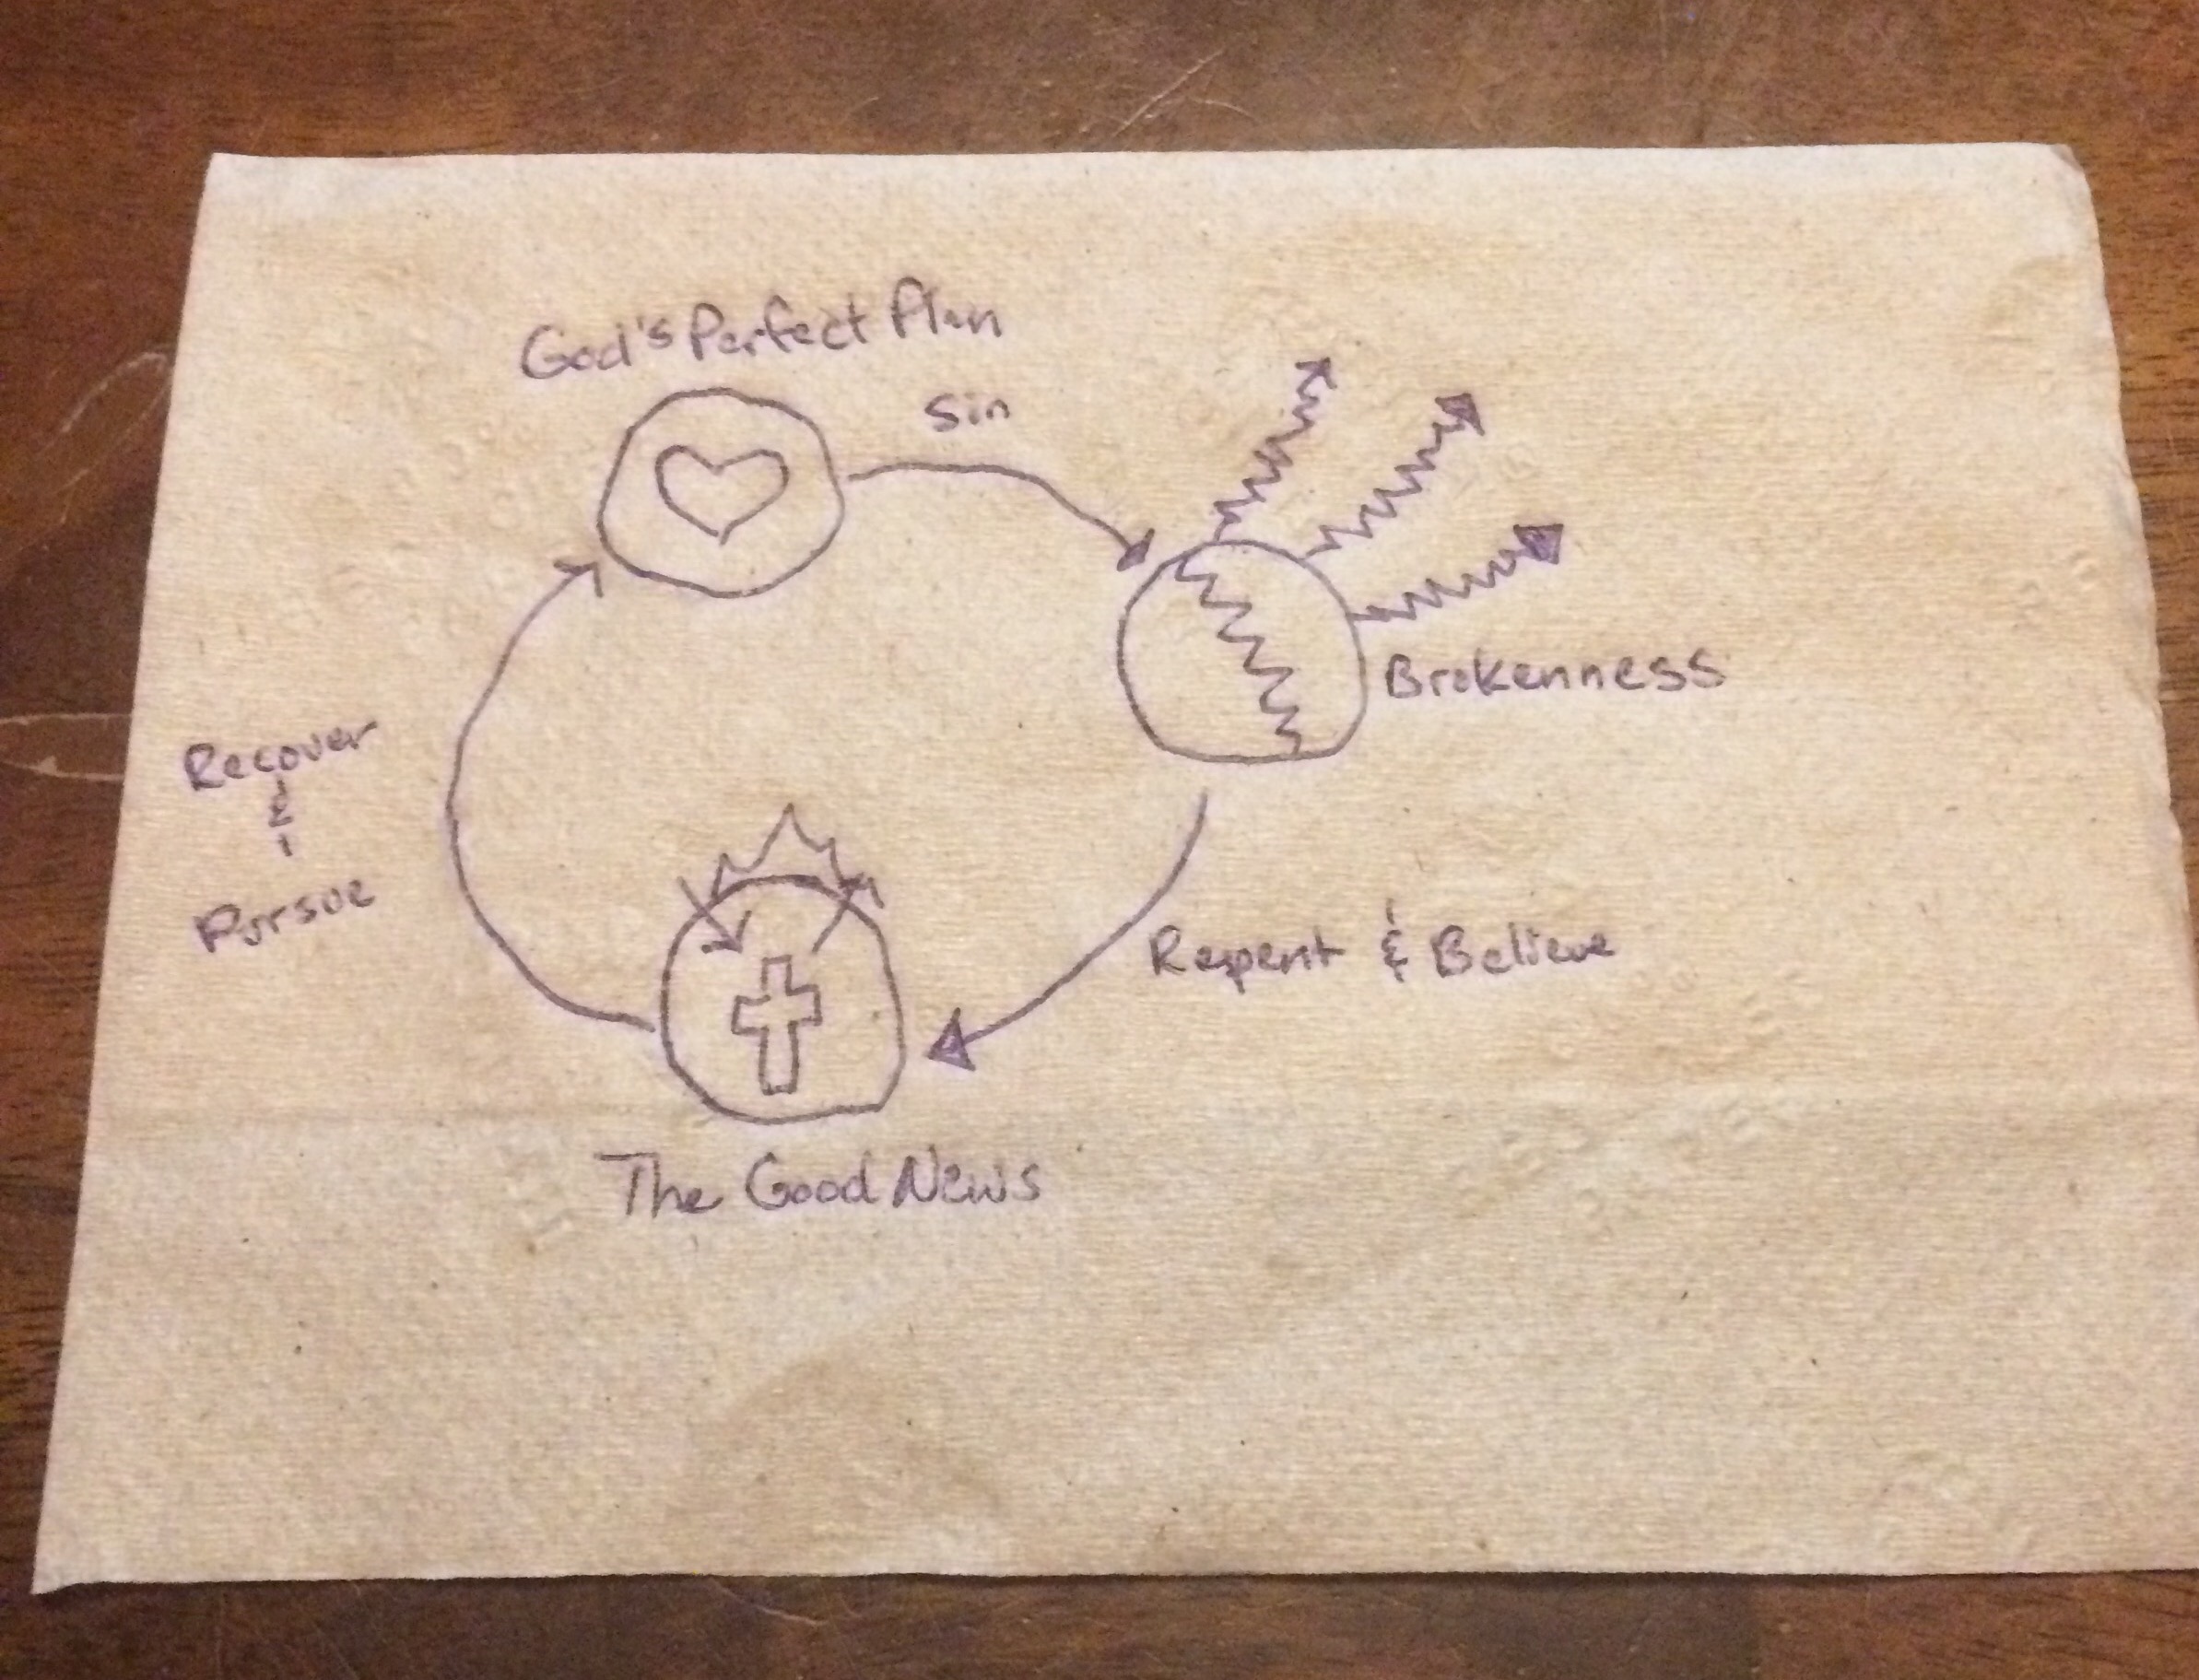 God's Perfect Plan
Sin
Brokenness
Recover
&
Pursue
Repent & Believe
The Good News